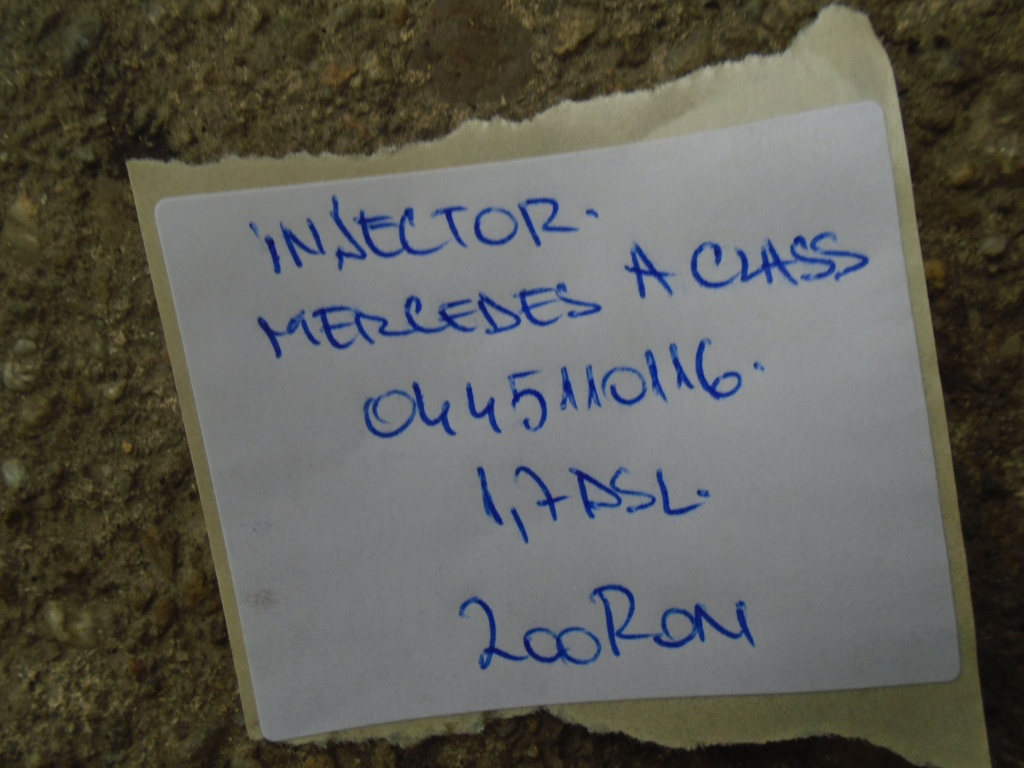 INJECTOR.
MERCEDES A CLASS
0445110116.
1,7 DSL.
200 RON